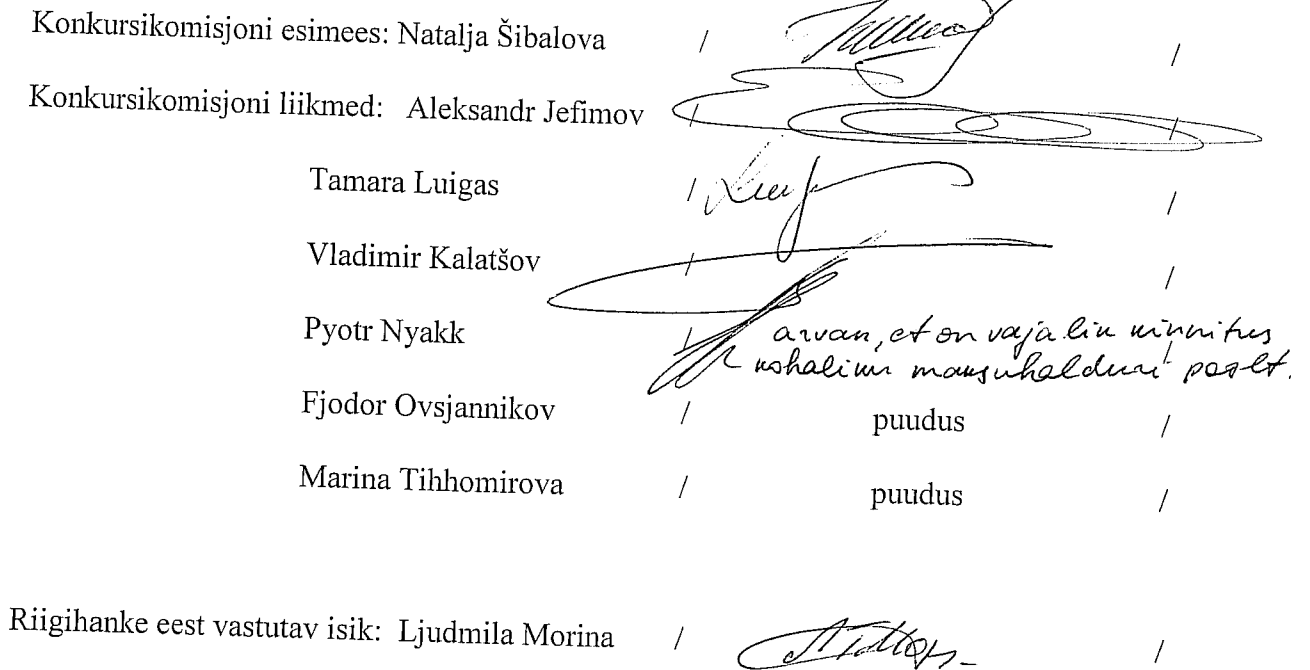 Konkursikomisjoni esimees: Natalja Šibalova / /
Konkursikomisjoni liikmed: Aleksandr Jefimov / /
Tamara Luigas / /
Vladimir Kalatšov / /
Pyotr Nyakk / arvan, et on vajalik kinnitus /
kohaliku maksuhalduri poolt.
Fjodor Ovsjannikov / puudus /
Marina Tihhomirova / puudus /
Riigihanke eest vastutav isik: Ljudmila Morina / /